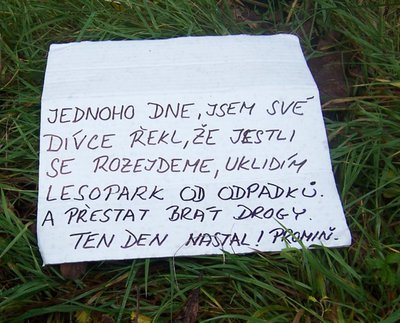 JEDNOHO DNE, JSEM SVÉ
DÍVCE ŘEKL, ŽE JESTLI
SE ROZEJDEME, UKLIDÍM
LESOPARK OD ODPADKŮ.
A PŘESTAT BRÁT DROGY.
TEN DEN NASTAL! PROMIŇ.